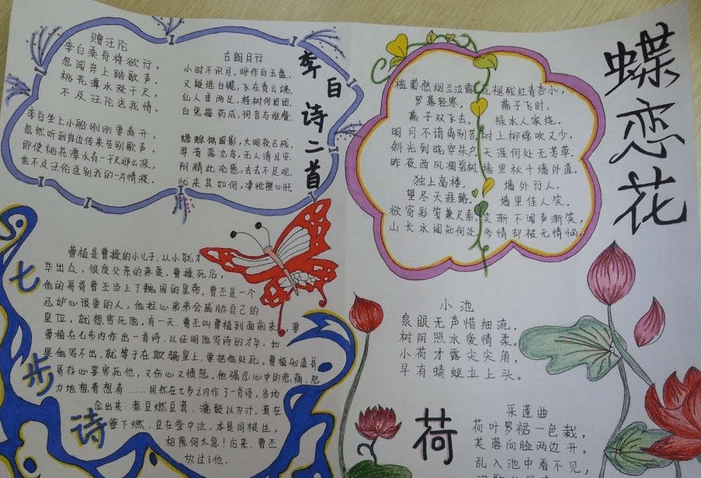 赠汪伦
李白乘舟将欲行,
忽闻岸上踏歌声。
桃花潭水深千尺,
不及汪伦送我情。
李白坐上小船刚刚要离开,
忽然听到岸边传来告别歌声。
即使桃花潭水有一千尺那么深,
也不及汪伦送别我的一片情深。
古朗月行
小时不识月,呼作白玉盘。
又疑瑶台镜,飞在青云端。
仙人垂两足,桂树何团团。
白兔捣药成,问言与谁餐。
蟾蜍蚀圆影,大明夜已残。
羿昔落九乌,天人清且安。
阴精此沦惑,去去不足观。
忧来其如何,凄怆摧心肝。
李白诗二首
蝶恋花
槛菊愁烟兰泣露
罗幕轻寒,
燕子双飞去。
明月不谙离别苦
斜光到晓穿朱户
昨夜西风凋碧树
独上高楼,
望尽天涯路。
欲寄彩笺兼尺素
山长水阔知何处
花褪残红青杏小,
燕子飞时,
绿水人家绕。
枝上柳绵吹又少,
天涯何处无芳草。
墙里秋千墙外道,
墙外行人,
墙里佳人笑。
笑渐不闻声渐笑,
多情却被无情恼。
七步诗
曹植是曹操的小儿子,从小就才
华出众,很受父亲的亲爱。曹操死后,
他的哥哥曹丕当上了魏国的皇帝。曹丕是一个
忌妒心很重的人,他担心弟弟会威胁自己的
皇位,就想害死他。有一天,曹丕叫曹植到面前来,要
曹植在七步内作出一首诗,以证明他写诗的才华。如
果他写不出,就等于在欺骗皇上,要把他处死。曹植知道哥
哥存心要害死他,又伤心又愤怒。他强忍心中的悲痛,努
力地想着想着……果然在七步之内作了一首诗,当场
念出来:煮豆燃豆萁,漉豉以为汁,萁在
釜下燃,豆在釜中泣,本是同根生,
相煎何太急!后来,曹丕
放过了他。
小池
泉眼无声惜细流,
树阴照水爱情柔。
小荷才露尖尖角,
早有蜻蜓立上头。
荷
采莲曲
荷叶罗裙一色裁,
芙蓉向脸两边开。
乱入池中看不见,